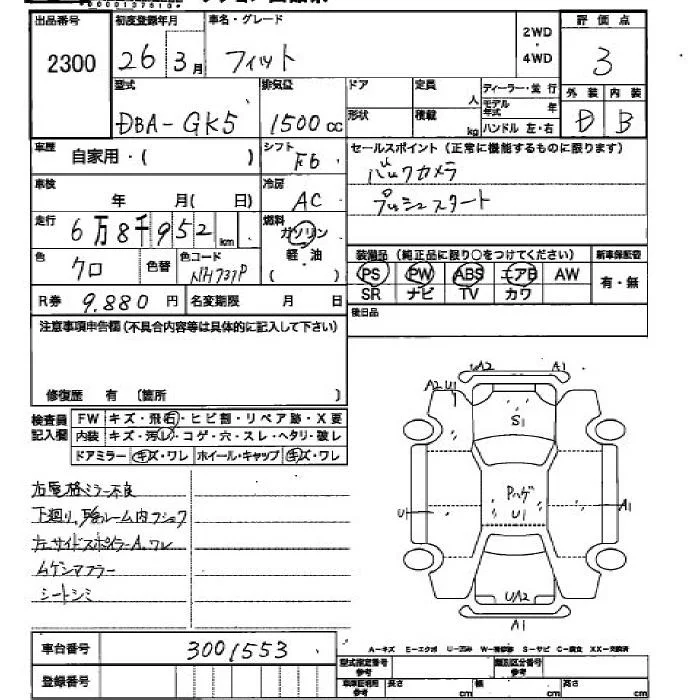 出品番号 初度登録年月 車名・グレード 評価点
2300 26 3月 フィット 2WD・4WD 3
型式 排気量 ドア 定員 人 ディーラー・並行 外装 内装
DBA-GK5 1500cc 形状 積載 kg モデル年式 年 ハンドル 左・右 D B
車歴 自家用・( ) シフト F6 セールスポイント(正常に機能するものに限ります)
バックカメラ
車検 年 月( 日) 冷房 AC プッシュスタート
走行 6万8千952km 燃料 ガソリン
軽油
( )
色 クロ 色替 色コード NH731P
装備品(純正品に限り○をつけてください) 新車保証書
PS PW ABS エアB AW 有・無
SR ナビ TV カワ
R券 9,880円 名変期限 月 日 後日品
注意事項申告欄(不具合内容等は具体的に記入して下さい)
修復歴 有 (箇所 )
検査員記入欄 FW キズ・飛石・ヒビ割・リペア跡・X要
内装 キズ・汚れ・コゲ・穴・スレ・ヘタリ・破レ
ドアミラー キズ・ワレ ホイール・キャップ キズ・ワレ
右電格ミラー不良
下廻り、
左サイドスポイラーA、ワレ
ムゲンマフラー
シートシミ
UA2 A1
A2 U1
S1
Pハゲ
U1
U1 A1
UA2
A1
A-キズ E-エクボ U-凹み W-補修跡 S-サビ C-腐食 XX-交換済
車台番号 3001553
登録番号
型式指定番号 参考 類別区分番号 参考
車庫証明用 参考 長さ cm 幅 cm 高さ cm